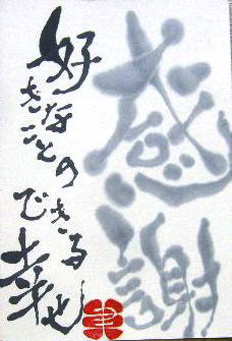 感謝
好きなことの
できる幸せ